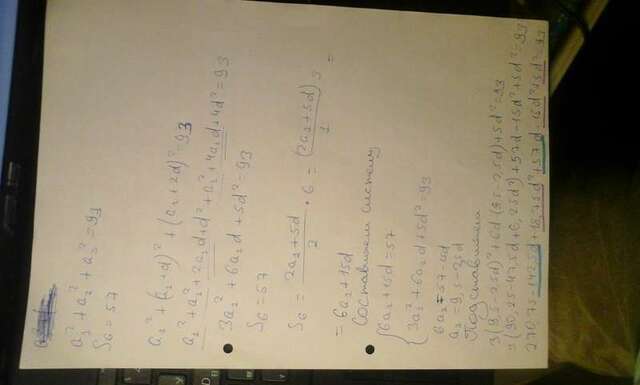 a₁² + a₂² + a₃² = 93
S₆ = 57
a₁² + (a₁+d)² + (a₁+2d)² = 93
a₁² + a₁² + 2a₁d + d² + a₁² + 4a₁d + 4d² = 93
3a₁² + 6a₁d + 5d² = 93
S₆ = 57
S₆ = (2a₁+5d)/2 · 6 = (2a₁+5d)3/1 =
= 6a₁ + 15d
Составляем систему
{ 6a₁ + 15d = 57
3a₁² + 6a₁d + 5d² = 93
a₁ = 9,5 - 2,5d
Подставляем
3(9,5-2,5d)² + 6d(9,5-2,5d) + 5d² = 93
3(90,25-47,5d+6,25d²) + 57d - 15d² + 5d² = 93
270,75 - 142,5d + 18,75d² + 57d - 15d² + 5d² = 93